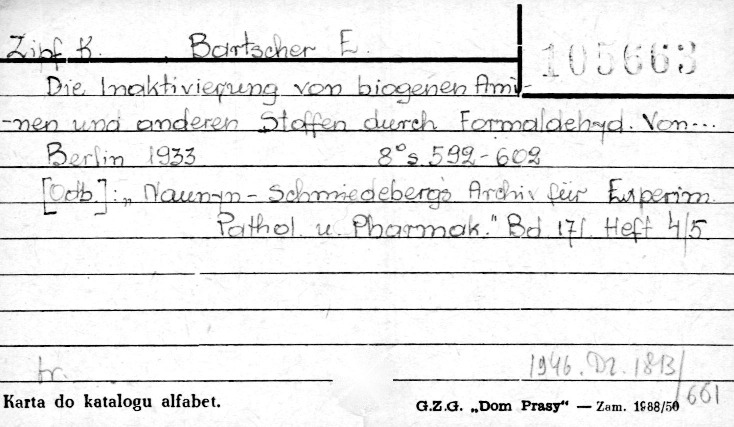 Zipf K. Bartscher E.
105663
Die Inaktivierung von biogenen Ami-
-nen und anderen Stoffen durch Formaldehyd. Von...
Berlin 1933 8° s. 592-602
[Odb.]: „Naunyn-Schmiedebergs Archiv für Experim.
Pathol. u. Pharmak." Bd 171. Heft 4/5.
1946. Dz. 1813/
661
Karta do katalogu alfabet.
G.Z.G. „Dom Prasy“ — Zam. 1988/50